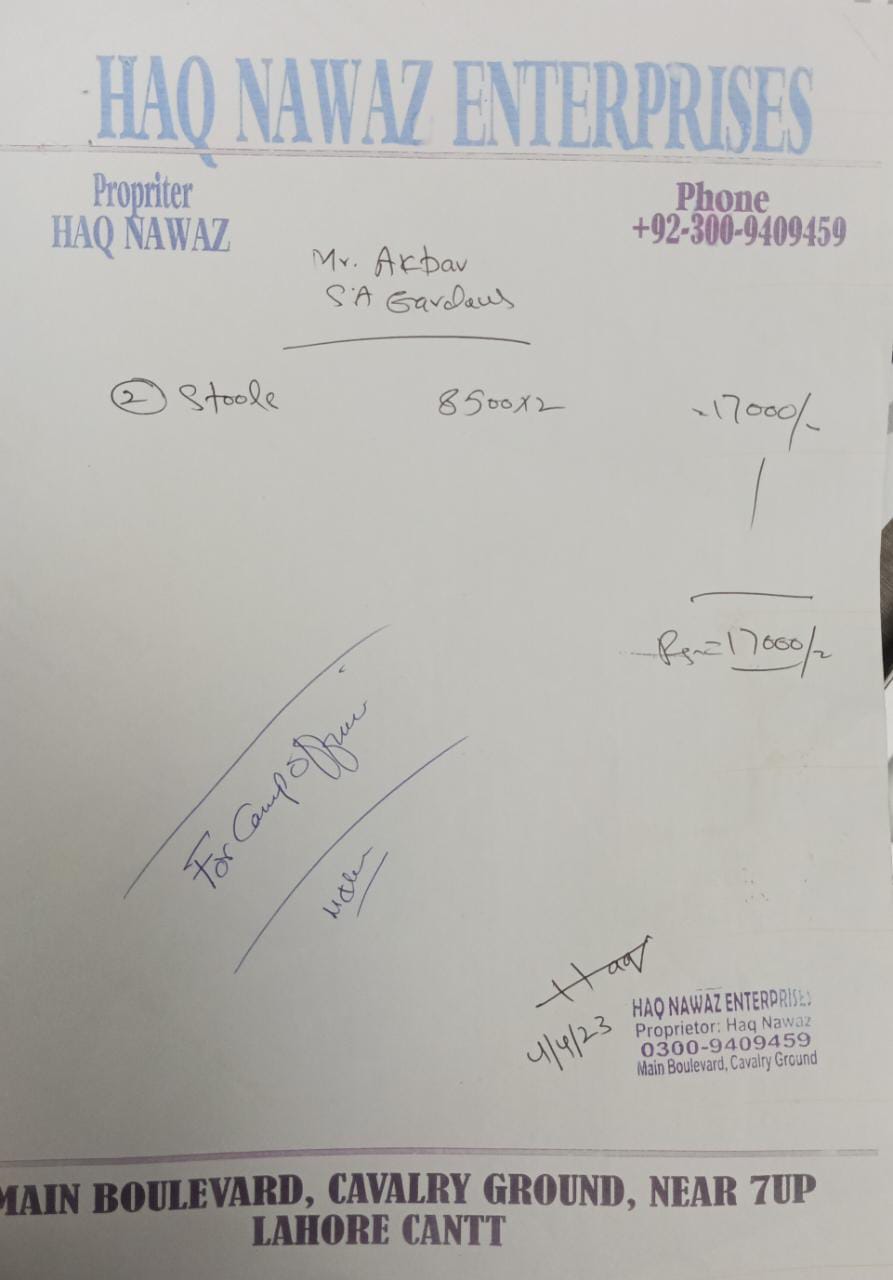 HAQ NAWAZ ENTERPRISES
Propriter
HAQ NAWAZ
Phone
+92-300-9409459
Mr. Akbar
S.A Gardens
2 Stools 8500x2 =17000/-
Rs=17000/-
For Camp Office
Haq
4/4/23
HAQ NAWAZ ENTERPRISES
Proprietor: Haq Nawaz
0300-9409459
Main Boulevard, Cavalry Ground
MAIN BOULEVARD, CAVALRY GROUND, NEAR 7UP
LAHORE CANTT